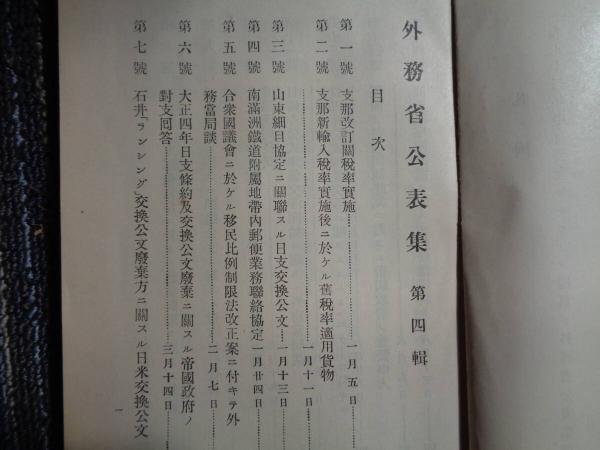 外務省公表集　第四輯
目次
第一號　支那改訂關稅率實施…………一月五日
第二號　支那新輸入稅率實施後ニ於ケル舊稅率適用貨物
…………一月十一日
第三號　山東細目協定ニ關聯スル日支交換公文…一月十三日
第四號　南滿洲鐵道附屬地帶內郵便業務聯絡協定一月廿四日
第五號　合衆國議會ニ於ケル移民比例制限法改正案ニ付キテ外
務當局談…………二月七日
第六號　大正四年日支條約及交換公文廢棄ニ關スル帝國政府ノ
對支囘答…………三月十四日
第七號　石井「ランシング」交換公文廢棄方ニ關スル日米交換公文
一